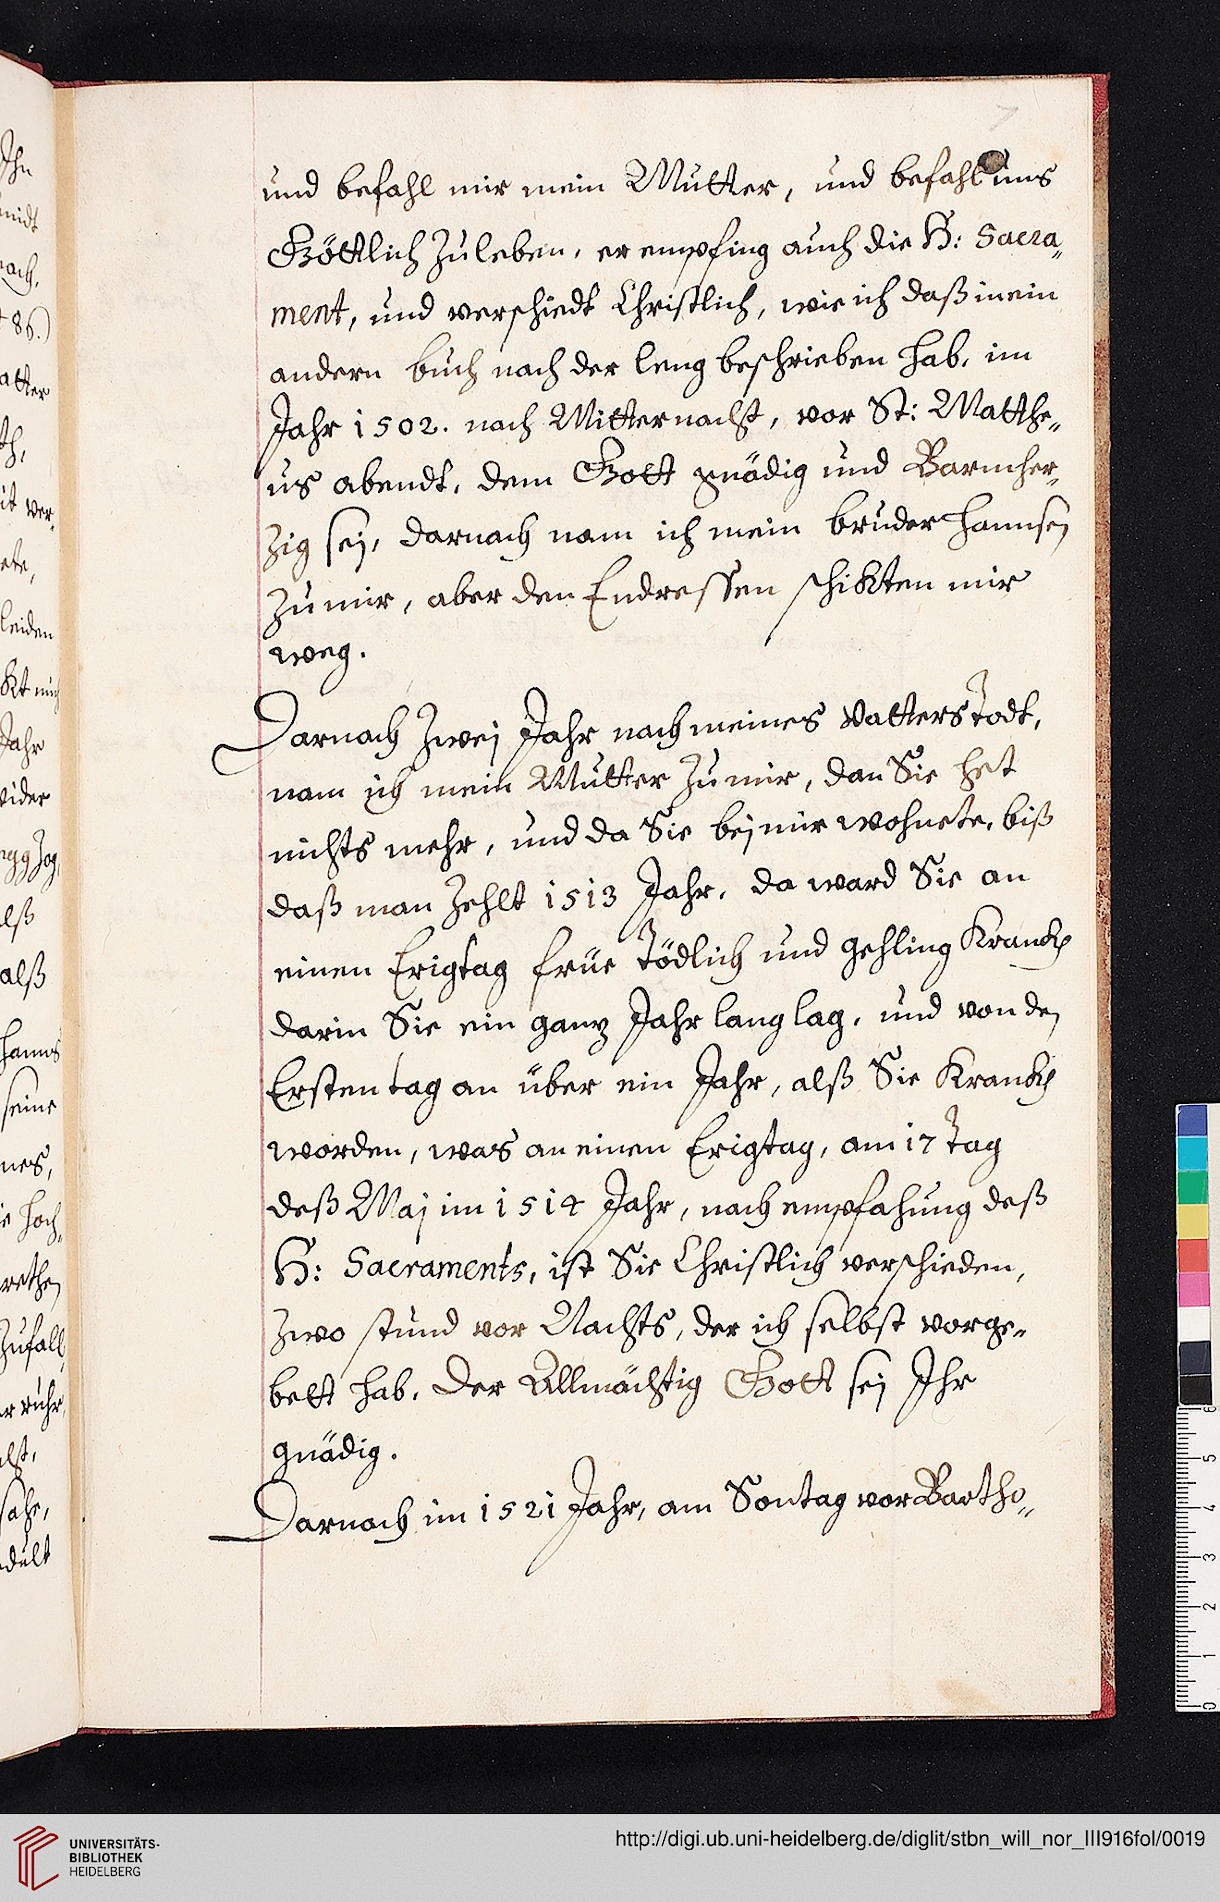 und befahl mir mein Mutter, und befahl uns
Göttlich zu leben, er empfing auch die H: Sacra„
ment, und verschiedt Christlich, wie ich daß in ein
andern buch nach der leng beschrieben hab, im
Jahr 1502. nach Mitternacht, vor St: Matthe„
us abendt, dem Gott gnädig und Barmher„
zig sej, darnach nam ich mein bruder Hannsen
zu mir, aber den Endressen schikten mir
weg.
Darnach zwej Jahr nach meines Vatters Todt,
nam ich mein Mutter zu mir, dan Sie het
nichts mehr, und da Sie bej mir wohnete, biß
daß man zehlt 1513 Jahr, da ward Sie an
einen Erigtag früe Tödlich und gehling Kranckh
darin Sie ein ganz Jahr lang lag, und von den
Ersten tag an über ein Jahr, alß Sie Kranckh
worden, was an einen Erigtag, am 17 Tag
deß Maj im 1514 Jahr, nach empfahung deß
H: Sacraments, ist Sie Christlich verschieden,
zwo stund vor Nachts, der ich selbst vorge„
bett hab, Der Allmächtig Gott sej Ihr
gnädig.
Darnach im 1521 Jahr, am Sontag vor Bartho„
UNIVERSITÄTS-
BIBLIOTHEK
HEIDELBERG
http://digi.ub.uni-heidelberg.de/diglit/stbn_will_nor_III916fol/0019